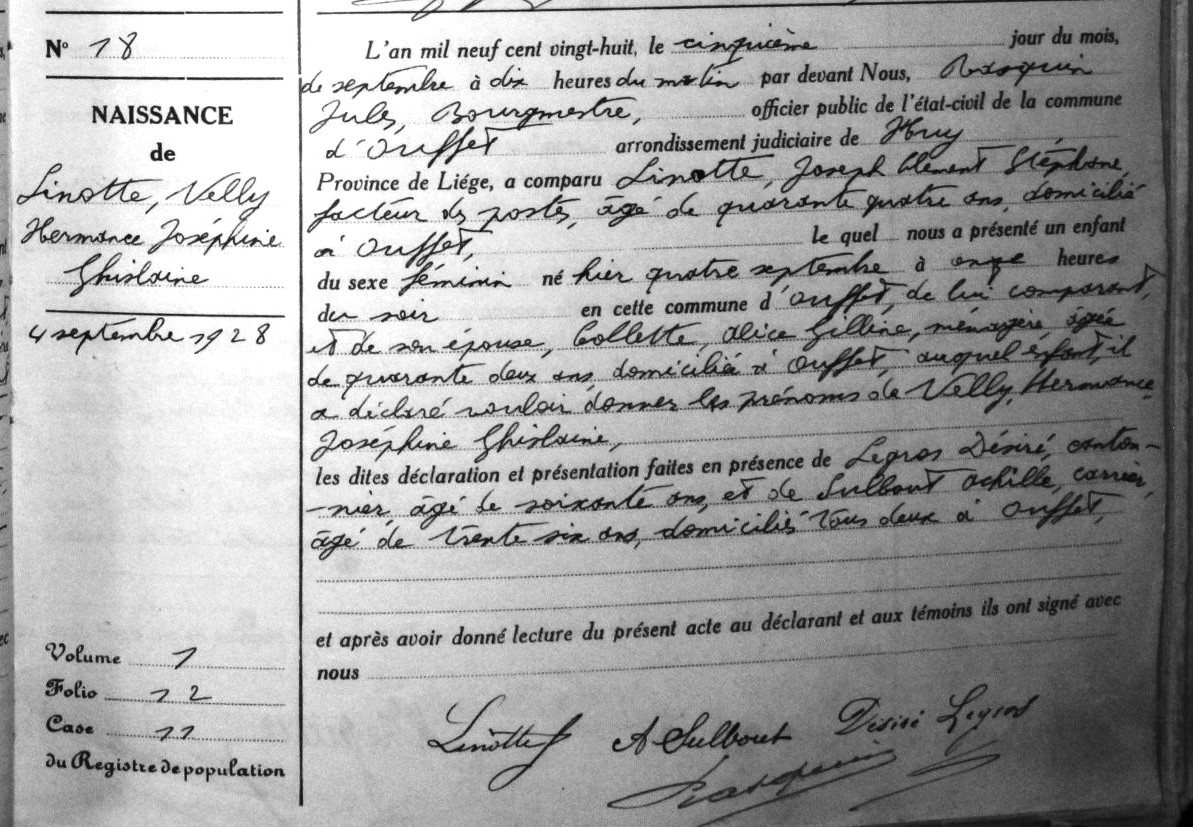 N° 18
NAISSANCE
de
Linotte, Nelly
Hermance Joséphine
Ghislaine
4 septembre 1928
Volume 1
Folio 12
Case 11
du Registre de population
L'an mil neuf cent vingt-huit, le cinquième jour du mois,
de septembre à dix heures du matin par devant Nous, Rasquin
Jules, Bourgmestre, officier public de l'état-civil de la commune
d'Ouffet arrondissement judiciaire de Huy
Province de Liége, a comparu Linotte, Joseph Clément Stéphane,
facteur des postes, âgé de quarante quatre ans, domicilié
à Ouffet, le quel nous a présenté un enfant
du sexe féminin né hier quatre septembre à onze heures
du soir en cette commune d'Ouffet, de lui comparant,
et de son épouse, Collette, Alice ménagère âgée
de quarante deux ans, domiciliée à Ouffet, auquel enfant, il
a déclaré vouloir donner les prénoms de Nelly, Hermance
Joséphine Ghislaine,
les dites déclaration et présentation faites en présence de Legros Désiré, canton-
-nier, âgé de soixante ans, et de Sulbout Achille, carrier,
âgé de trente six ans, domiciliés tous deux à Ouffet,
et après avoir donné lecture du présent acte au déclarant et aux témoins ils ont signé avec
nous
Linotte J A Sulbout Désiré Legros
Rasquin